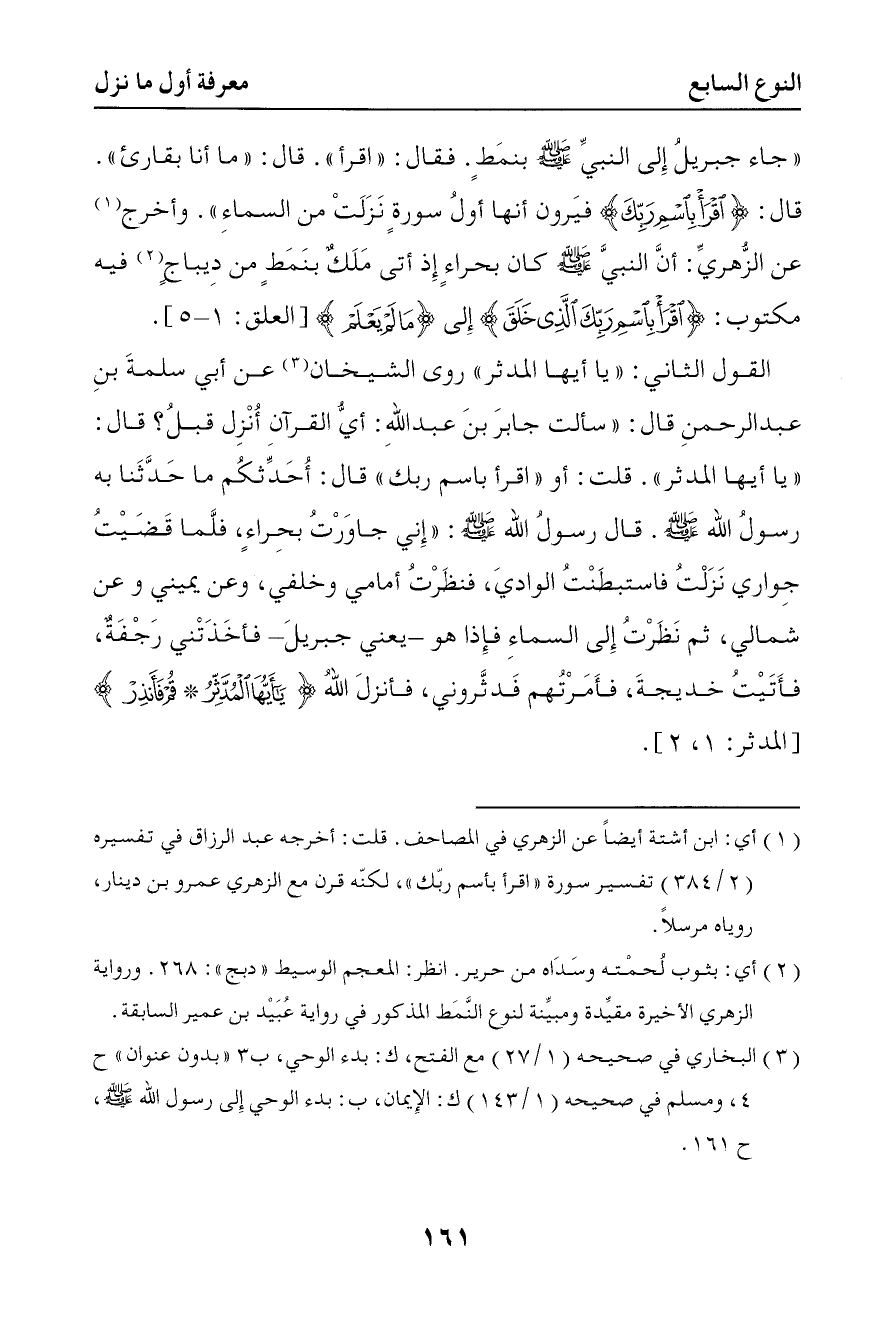 النوع السابع
معرفة أول ما نزل
«جاء جبريلُ إلى النبيِّ ﷺ بنمَطٍ. فقال: «اقرأ». قال: «ما أنا بقارئ».
قال: ﴿ ٱقْرَأْ بِٱسْمِ رَبِّكَ﴾ فيَرون أنها أولُ سورةٍ نَزَلَتْ من السماءِ». وأخرج(١)
عن الزُّهريِّ: أنَّ النبيَّ ﷺ كان بحراءٍ إذ أتى مَلَكٌ بنَمَطٍ من دِيباجٍ(٢) فيه
مكتوب: ﴿ٱقْرَأْ بِٱسْمِ رَبِّكَ ٱلَّذِى خَلَقَ﴾ إلى ﴿مَا لَمْ يَعْلَمْ ﴾ [العلق: ١–٥].
القول الثاني: «يا أيها المدثر» روى الشيخان(٣) عن أبي سلمةَ بنِ
عبدالرحمنِ قال: «سألت جابرَ بنَ عبداللهِ: أيُّ القرآنِ أُنْزِل قبلُ؟ قال:
«يا أيها المدثر». قلت: أو «اقرأ باسم ربك» قال: أُحَدِّثكُم ما حَدَّثَنا به
رسولُ الله ﷺ . قال رسولُ الله ﷺ : «إني جاوَرْتُ بحِراءٍ، فلَّما قَضَيْتُ
جواري نَزَلْتُ فاستبطَنْتُ الواديَ، فنظَرْتُ أمامي وخلفي، وعن يميني و عن
شمالي، ثم نَظَرْتُ إلى السماءِ فإذا هو –يعني جبريلَ– فأخَذَتْني رَجْفَةٌ،
فأتَيْتُ خديجةَ، فأمَرْتُهم فَدثَّروني، فأنزلَ اللهُ ﴿ يَٰٓأَيُّهَا ٱلْمُدَّثِّرُ * قُمْ فَأَنذِرْ ﴾
[المدثر: ١، ٢].
(١) أي: ابن أشتة أيضاً عن الزهري في المصاحف. قلت: أخرجه عبد الرزاق في تفسيره
(٢/ ٣٨٤) تفسير سورة «اقرأ بأسم ربّك»، لكنّه قرن مع الزهري عمرو بن دينار،
روياه مرسلاً.
(٢) أي: بثوب لُحمْته وسَدَاه من حرير. انظر: المعجم الوسيط «دبج»: ٢٦٨. ورواية
الزهري الأخيرة مقيِّدة ومبيِّنة لنوع النَّمَط المذكور في رواية عُبَيْد بن عمير السابقة.
(٣) البخاري في صحيحه (١/ ٢٧) مع الفتح، ك: بدء الوحي، ب٣ «بدون عنوان» ح
٤، ومسلم في صحيحه (١/ ١٤٣) ك: الإيمان، ب: بدء الوحي إلى رسول الله ﷺ،
ح ١٦١.
١٦١